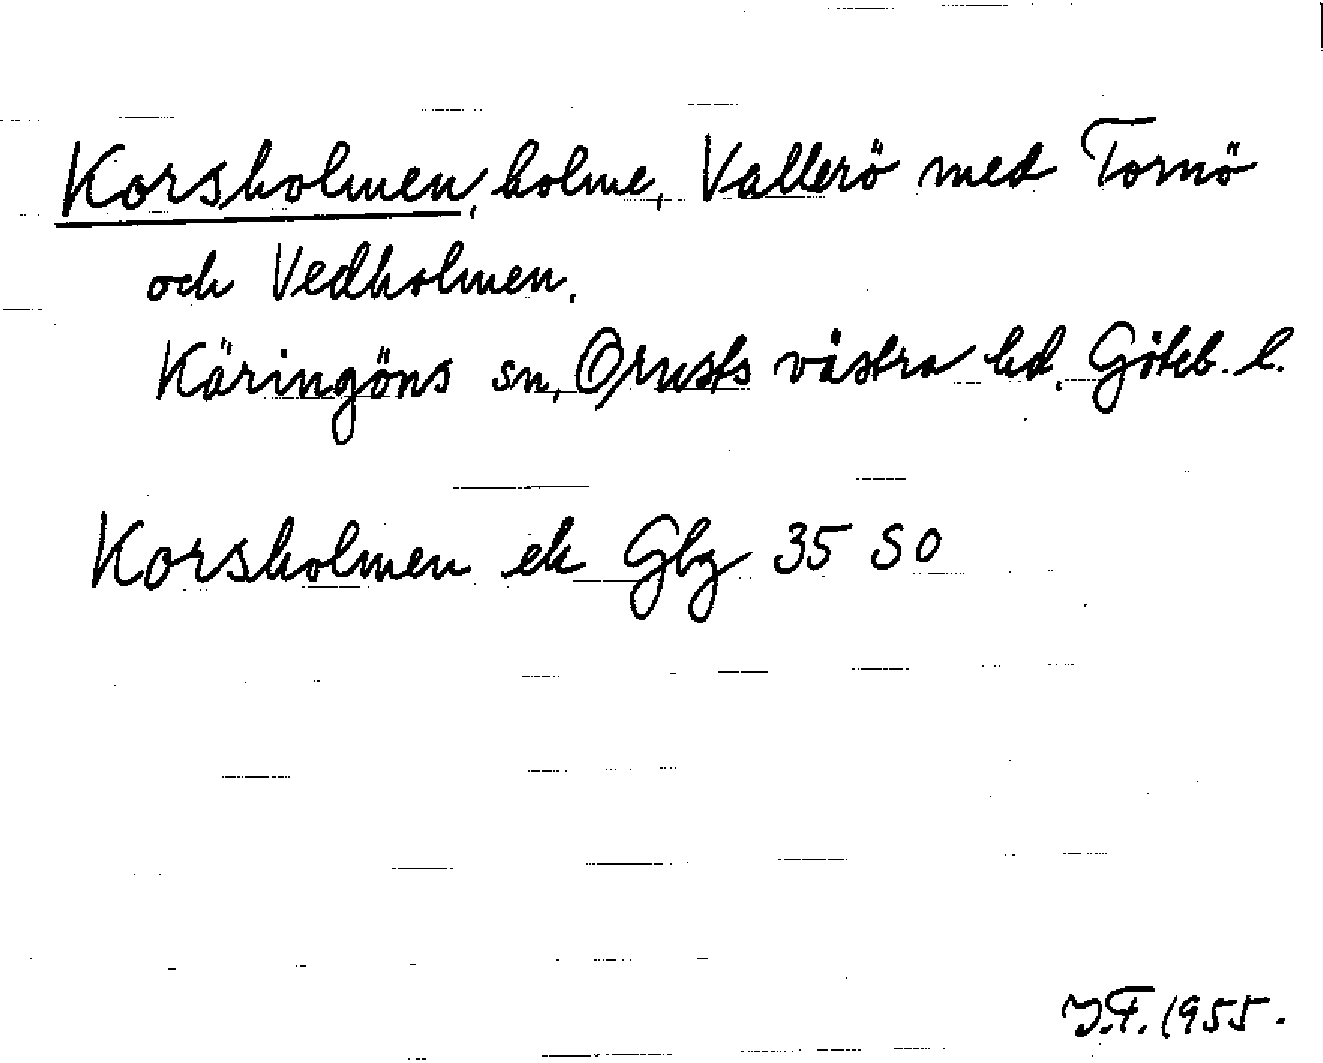 Korsholmen, holme, Vallerö med Tornö
och Vedholmen,
Käringöns sn, Orusts västra hd, Göteb. l.
Korsholmen ek Gbg 35 SO
J.F. 1955.